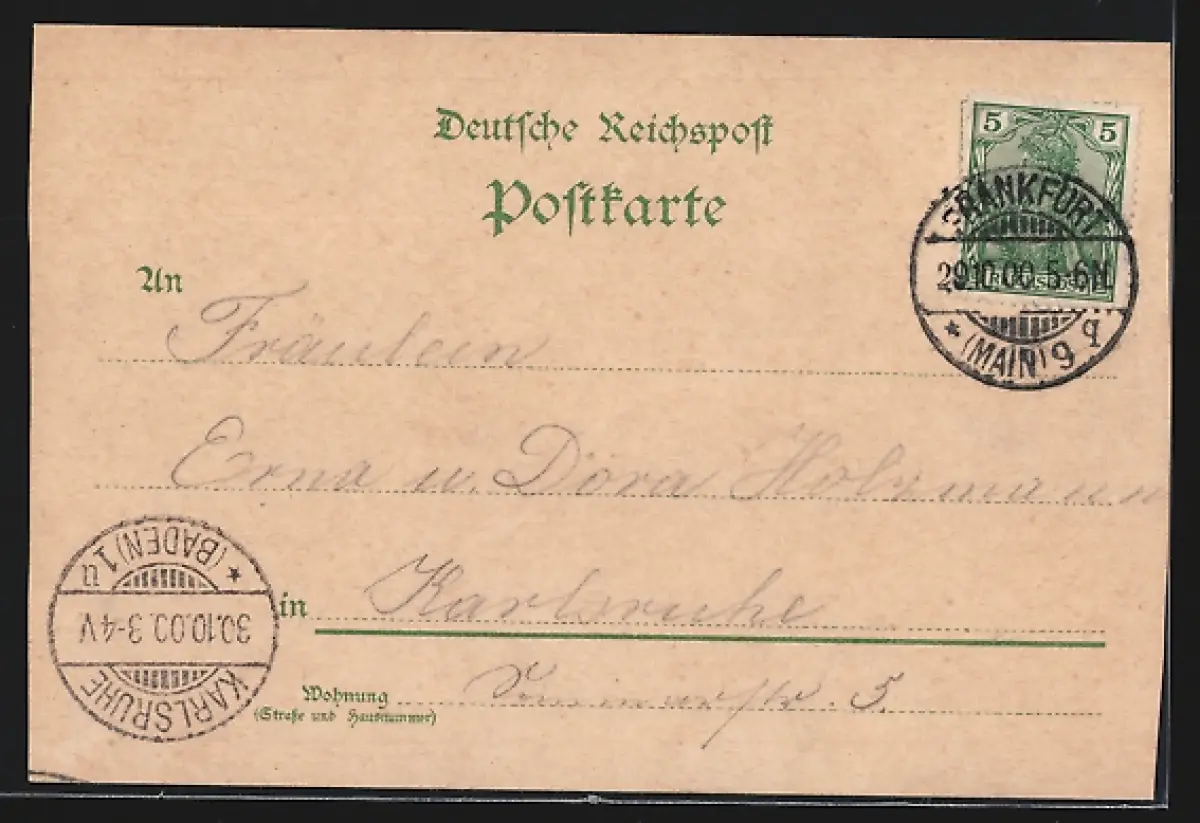 Deutsche Reichspost
Postkarte
5 5
FRANKFURT
29.10.00. 5-6N.
* (MAIN) 9 q
An
Fräulein
Erna u. Dora Holzmann
in Karlsruhe
Wohnung
(Straße und Hausnummer)
5.
KARLSRUHE
30.10.00. 3-4V.
* (BADEN) 1 n